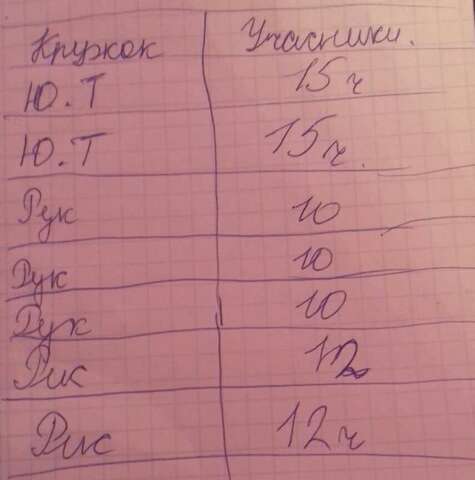 Кружок Учасники.
Ю.Т 15 ч
Ю.Т 15 ч.
Рук 10
Рук 10
Рук 10
Рис 12
Рис 12 ч